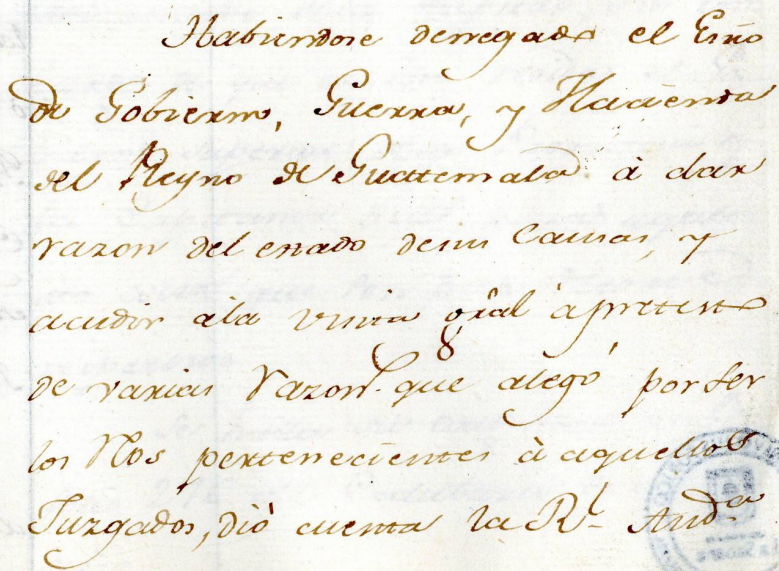 Habiendose denegado el Esño
de Gobierno, Guerra, y Hacienda
del Reyno de Guatemala à dar
razon del estado desus Causas, y
acudir ala visita gràl à pretesto
de varias razon.s que alegó por ser
los Nos pertenecientes à aquellos
Juzgados, dió cuenta la Rl. Auda